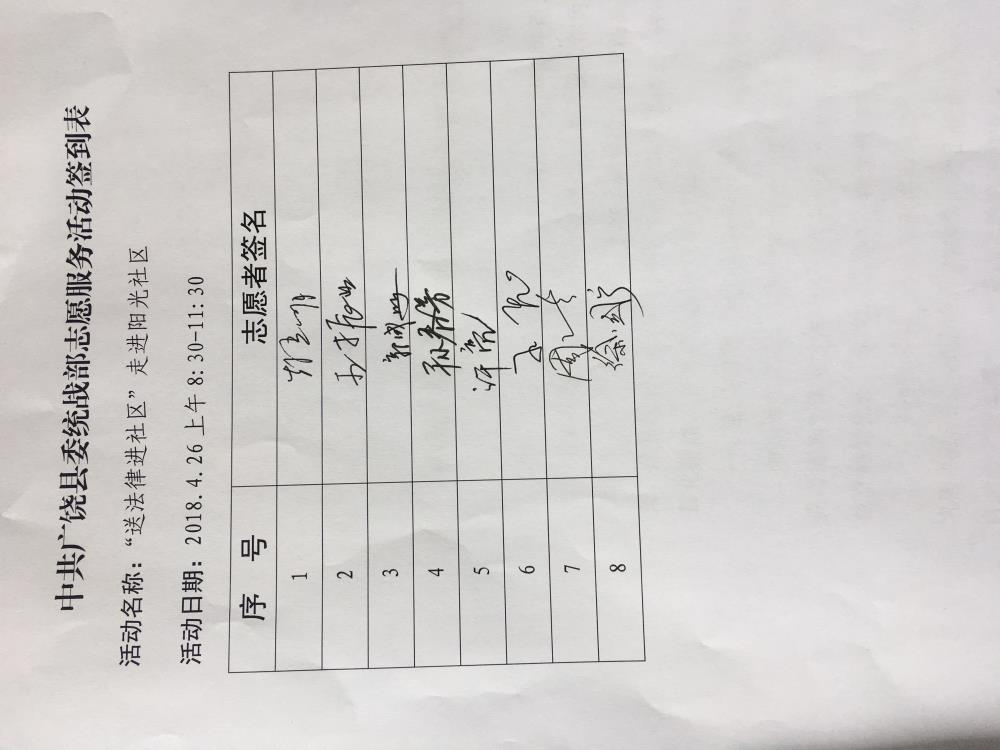 中共广饶县委统战部志愿服务活动签到表
活动名称：“送法律进社区”走进阳光社区
活动日期：2018.4.26上午8:30-11:30
序 号 志愿者签名
1
2
3
4 孙秀芳
5 许亮
6
7
8